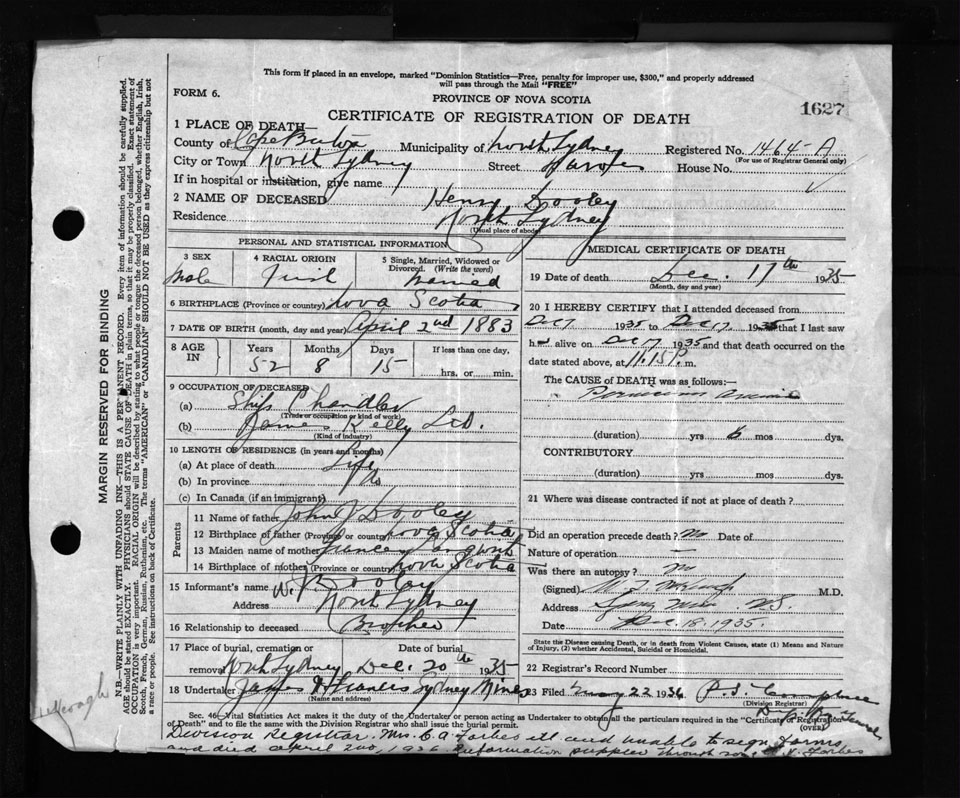 This form if placed in an envelope, marked "Dominion Statistics—Free, penalty for improper use, $300," and properly addressed
will pass through the Mail "FREE"
FORM 6.
PROVINCE OF NOVA SCOTIA
1627
CERTIFICATE OF REGISTRATION OF DEATH
1 PLACE OF DEATH—
County of Cape Breton Municipality of North Sydney Registered No. 1464-A
(For use of Registrar General only)
City or Town North Sydney Street House No.
If in hospital or institution, give name
2 NAME OF DECEASED Henry Dooley
Residence North Sydney
(Usual place of abode)
PERSONAL AND STATISTICAL INFORMATION
3 SEX Male
4 RACIAL ORIGIN Irish
5 Single, Married, Widowed or Divorced. (Write the word) Married
6 BIRTHPLACE (Province or country) Nova Scotia
7 DATE OF BIRTH (month, day and year) April 2nd 1883
8 AGE IN Years Months Days If less than one day,
52 8 15 hrs. or min.
9 OCCUPATION OF DECEASED
(a) Ships Chandler
(Trade or occupation or kind of work)
(b) James Kelly Ltd.
(Kind of industry)
10 LENGTH OF RESIDENCE (in years and months)
(a) At place of death Life
(b) In province do
(c) In Canada (if an immigrant)
Parents
11 Name of father John J Dooley
12 Birthplace of father (Province or country) Nova Scotia
13 Maiden name of mother Frances
14 Birthplace of mother (Province or country) Nova Scotia
15 Informant's name Dooley
Address North Sydney
16 Relationship to deceased Brother
17 Place of burial, cremation or removal Date of burial
North Sydney Dec. 20th 1935
18 Undertaker James A Francis Sydney Mines
(Name and address)
MEDICAL CERTIFICATE OF DEATH
19 Date of death Dec. 17th 1935
(Month, day and year)
20 I HEREBY CERTIFY that I attended deceased from
Dec 7 1935 to Dec 17 1935 that I last saw
h alive on Dec 17 1935 and that death occurred on the
date stated above, at 11.15 P. m.
The CAUSE of DEATH was as follows:
Pernicious Anemia
(duration) yrs 6 mos dys.
CONTRIBUTORY
(duration) yrs mos dys.
21 Where was disease contracted if not at place of death?
Did an operation precede death? No Date of
Nature of operation —
Was there an autopsy? no
(Signed) M.D.
Address Sydney Mines N.S.
Date Dec. 18. 1935.
State the Disease causing Death, or in death from Violent Causes, state (1) Means and
Nature of Injury, (2) whether Accidental, Suicidal or Homicidal.
22 Registrar's Record Number
23 Filed May 22 1936
(Division Registrar)
(OVER)
Sec. 46—Vital Statistics Act makes it the duty of the Undertaker or person acting as Undertaker to obtain all the particulars required in the "Certificate of Registration
of Death" and to file the same with the Division Registrar who shall issue the burial permit.
Division Registrar. Mrs. C A Forbes ill and unable to sign forms
and died April 2nd, 1936. Information supplied through son Forbes
MARGIN RESERVED FOR BINDING
N.B.—WRITE PLAINLY WITH UNFADING INK—THIS IS A PERMANENT RECORD. Every item of information should be carefully supplied.
AGE should be stated EXACTLY. PHYSICIANS should STATE CAUSE OF DEATH in plain terms, so that it may be properly classified. Exact statement of
OCCUPATION is very important. RACIAL ORIGIN will be described by stating to what people or tongue the deceased person belonged, whether English, Irish,
Scotch, French, German, Russian, Ruthenian, etc. The terms "AMERICAN" or "CANADIAN" SHOULD NOT BE USED as they express citizenship but not
a race or people. See instructions on back of Certificate.